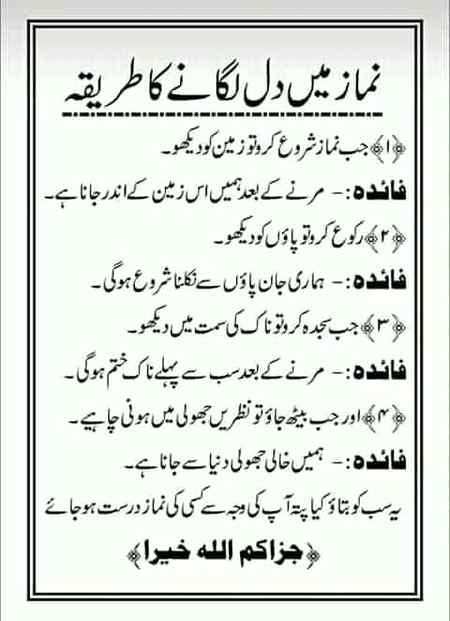 نماز میں دل لگانے کا طریقہ
﴿۱﴾ جب نماز شروع کرو تو زمین کو دیکھو۔
فائدہ:- مرنے کے بعد ہمیں اس زمین کے اندر جانا ہے۔
﴿۲﴾ رکوع کرو تو پاؤں کو دیکھو۔
فائدہ:- ہماری جان پاؤں سے نکلنا شروع ہوگی۔
﴿۳﴾ جب سجدہ کرو تو ناک کی سمت میں دیکھو۔
فائدہ:- مرنے کے بعد سب سے پہلے ناک ختم ہوگی۔
﴿۴﴾ اور جب بیٹھ جاؤ تو نظریں جھولی میں ہونی چاہیے۔
فائدہ:- ہمیں خالی جھولی دنیا سے جانا ہے۔
یہ سب کو بتاؤ کیا پتہ آپ کی وجہ سے کسی کی نماز درست ہو جائے
﴿جزاکم الله خیرا﴾